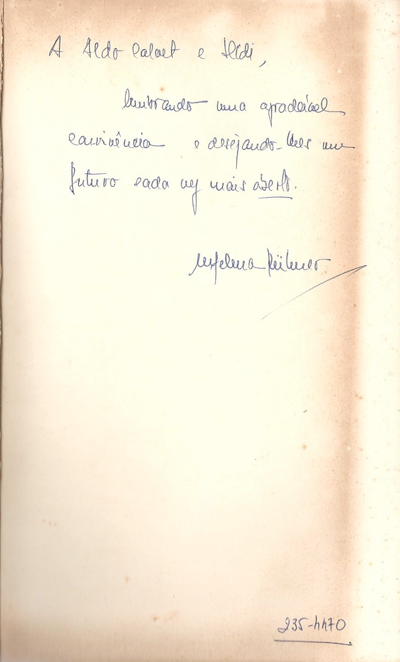 A Aldo Calvet e Heldi,
lembrando uma agradável
convivência e desejando-lhes um
futuro cada vez mais aberto.
Mª Helena Kühner
235-4470